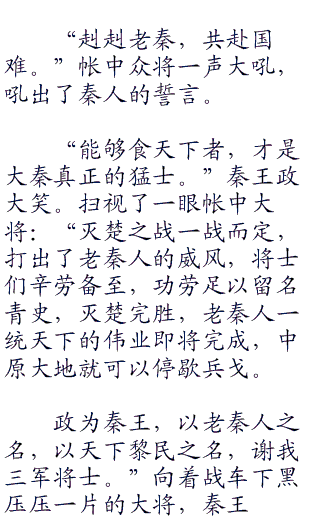 “赳赳老秦，共赴国
难。”帐中众将一声大吼，
吼出了秦人的誓言。
“能够食天下者，才是
大秦真正的猛士。”秦王政
大笑。扫视了一眼帐中大
将：“灭楚之战一战而定，
打出了老秦人的威风，将士
们辛劳备至，功劳足以留名
青史，灭楚完胜，老秦人一
统天下的伟业即将完成，中
原大地就可以停歇兵戈。
政为秦王，以老秦人之
名，以天下黎民之名，谢我
三军将士。”向着战车下黑
压压一片的大将，秦王